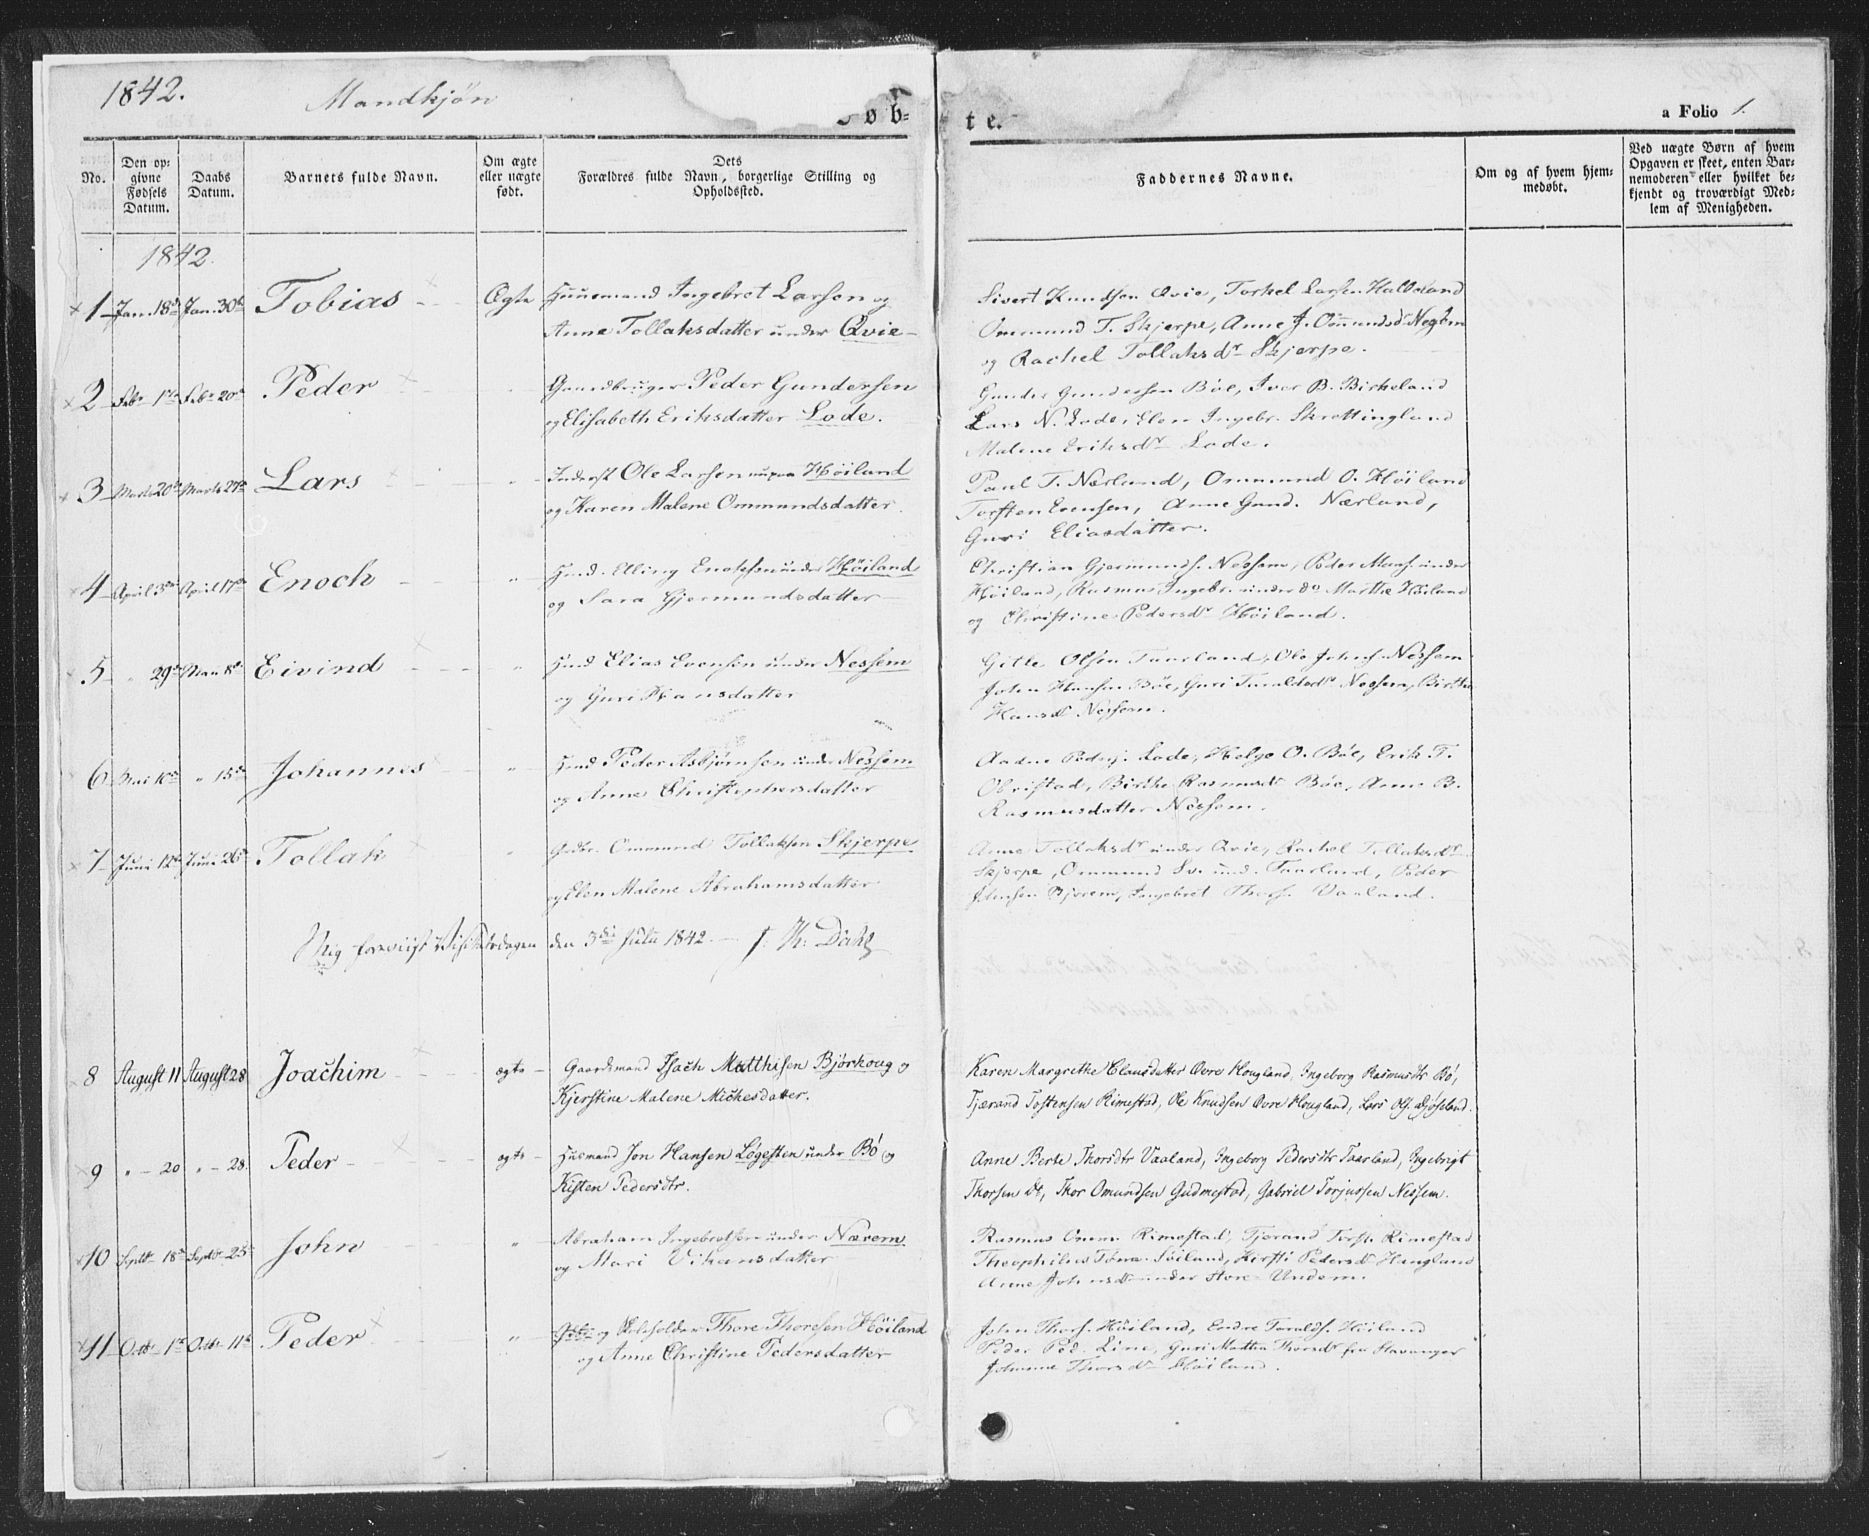 1842. Mandkjøn øb- te. a Folio 1.
No. Den op- givne Fødsels Datum. Daabs Datum. Barnets fulde Navn. Om ægte eller uægte født. Dets Forældres fulde Navn, borgerlige Stilling og Opholdssted. Faddernes Navne. Om og af hvem hjem- medøbt. Ved uægte Børn af hvem Opgaven er skeet, enten Bar- nemoderen eller hvilket be- kjendt og troværdigt Med- lem af Menigheden.
1842.
1 Jan. 18de Jan. 30te Tobias Ægte Huusmand Ingebret Larsen og
Anne Tollaksdatter under Qvie
Sivert Knudsen Qvie, Torkel Larsen Halveland
Ommund T. Skjerpe, Anne J. Ommundsdr
og Rachel Tollaksdr Skjerpe.
2 Febr 1ste Febr 20de Peder " Gaardbruger Peder Gundersen
og Elisabeth Eriksdatter Lode.
Gunder Gundersen Böe, Iver B. Birkeland
Lars N. Lode, Elen Ingebr. Skrettingland
Malene Eriksdr Lode.
3 Marts 20de Marts 27de Lars " Inderst Ole Larsen Höiland
og Karen Malene Ommundsdatter.
Paul T. Nærland, Ommund O. Höiland
Torsten Evensen, Anne Gund. Nærland,
Guri Eliasdatter.
4 April 3die April 17de Enoch " Huusd. Elling Enochsen under Höiland
og Sara Gjermundsdatter
Christian Gjermunds. Nessem, Peder Mons. under
Höiland, Rasmus Ingebr. under do Marthe Höiland
og Christine Pedersdr Höiland.
5 " 29de Mai 8de Eivind " Husd Elias Evensen under Nessem
og Guri Hansdatter
Gitle Olsen Taarland, Ole Johns. Nessem
John Hansen Böe, Guri Taraldsdr Nessem, Birthe
Hansdr Nessem.
6 Mai 10de " 15de Johannes " Husd Peder Asbjörnsen under Nessem
og Anne Christophersdatter
Aadne Peders. Lode, Helge O. Böe, Erik T.
Obrestad, Birthe Rasmusdr Böe, Anne B.
Rasmusdatter Nessem.
7 Juni 12te Juni 26de Tollak " Gbr. Ommund Tollaksen Skjerpe
og Elen Malene Abrahamsdatter
Anne Tollaksdr under Qvie, Rachel Tollaksdr
Skjerpe, Ommund Sv. und. Taarland, Peder
Johnsen Bjorem, Ingebret Thors. Vaaland.
Mig foreviist Visitatsdagen den 5te Julii 1842.
8 August 11 August 28 Joachim ægte Gaardmand Isach Matthisen Björkoug og
Kjerstine Malene Michesdatter.
Karen Margrethe Clausdatter Övre Hougland, Ingeborg Rasmusdtr Bö,
Tjærand Tostensen Rimestad, Ole Knudsen Övre Hougland, Lars Ols.
9 " 20 " 28 Peder ægte Husmand Jon Hansen Løgesten under Bö og
Kisten Pedersdtr.
Anne Berte Thorsdtr Vaaland, Ingeborg Pedersdtr Taarland, Ingebrigt
Thorsen dt, Thor Omundsen Gudmestad, Gabriel Torjussen Nessem.
10 Septbr 18de Septbr 25de John " Abraham Ingebretsen under Nærem
og Mari Vikansdatter
Rasmus Omm. Rimestad, Tjerand Torst. Rimestad
Theophilus Tönn. Söiland, Kirsti Pedersdr Haugland
Anne Johnsdr under Store Undem.
11 Octbr 1ste Octbr 11te Peder " og Skoleholder Thore Thoresen Höiland
og Anne Christine Pedersdatter
John Thors. Höiland, Endre Taralds. Höiland
Peder Ped. Line, Guri Marthea Thorsdr fra Stavanger
Johanne Thorsdr Höiland.